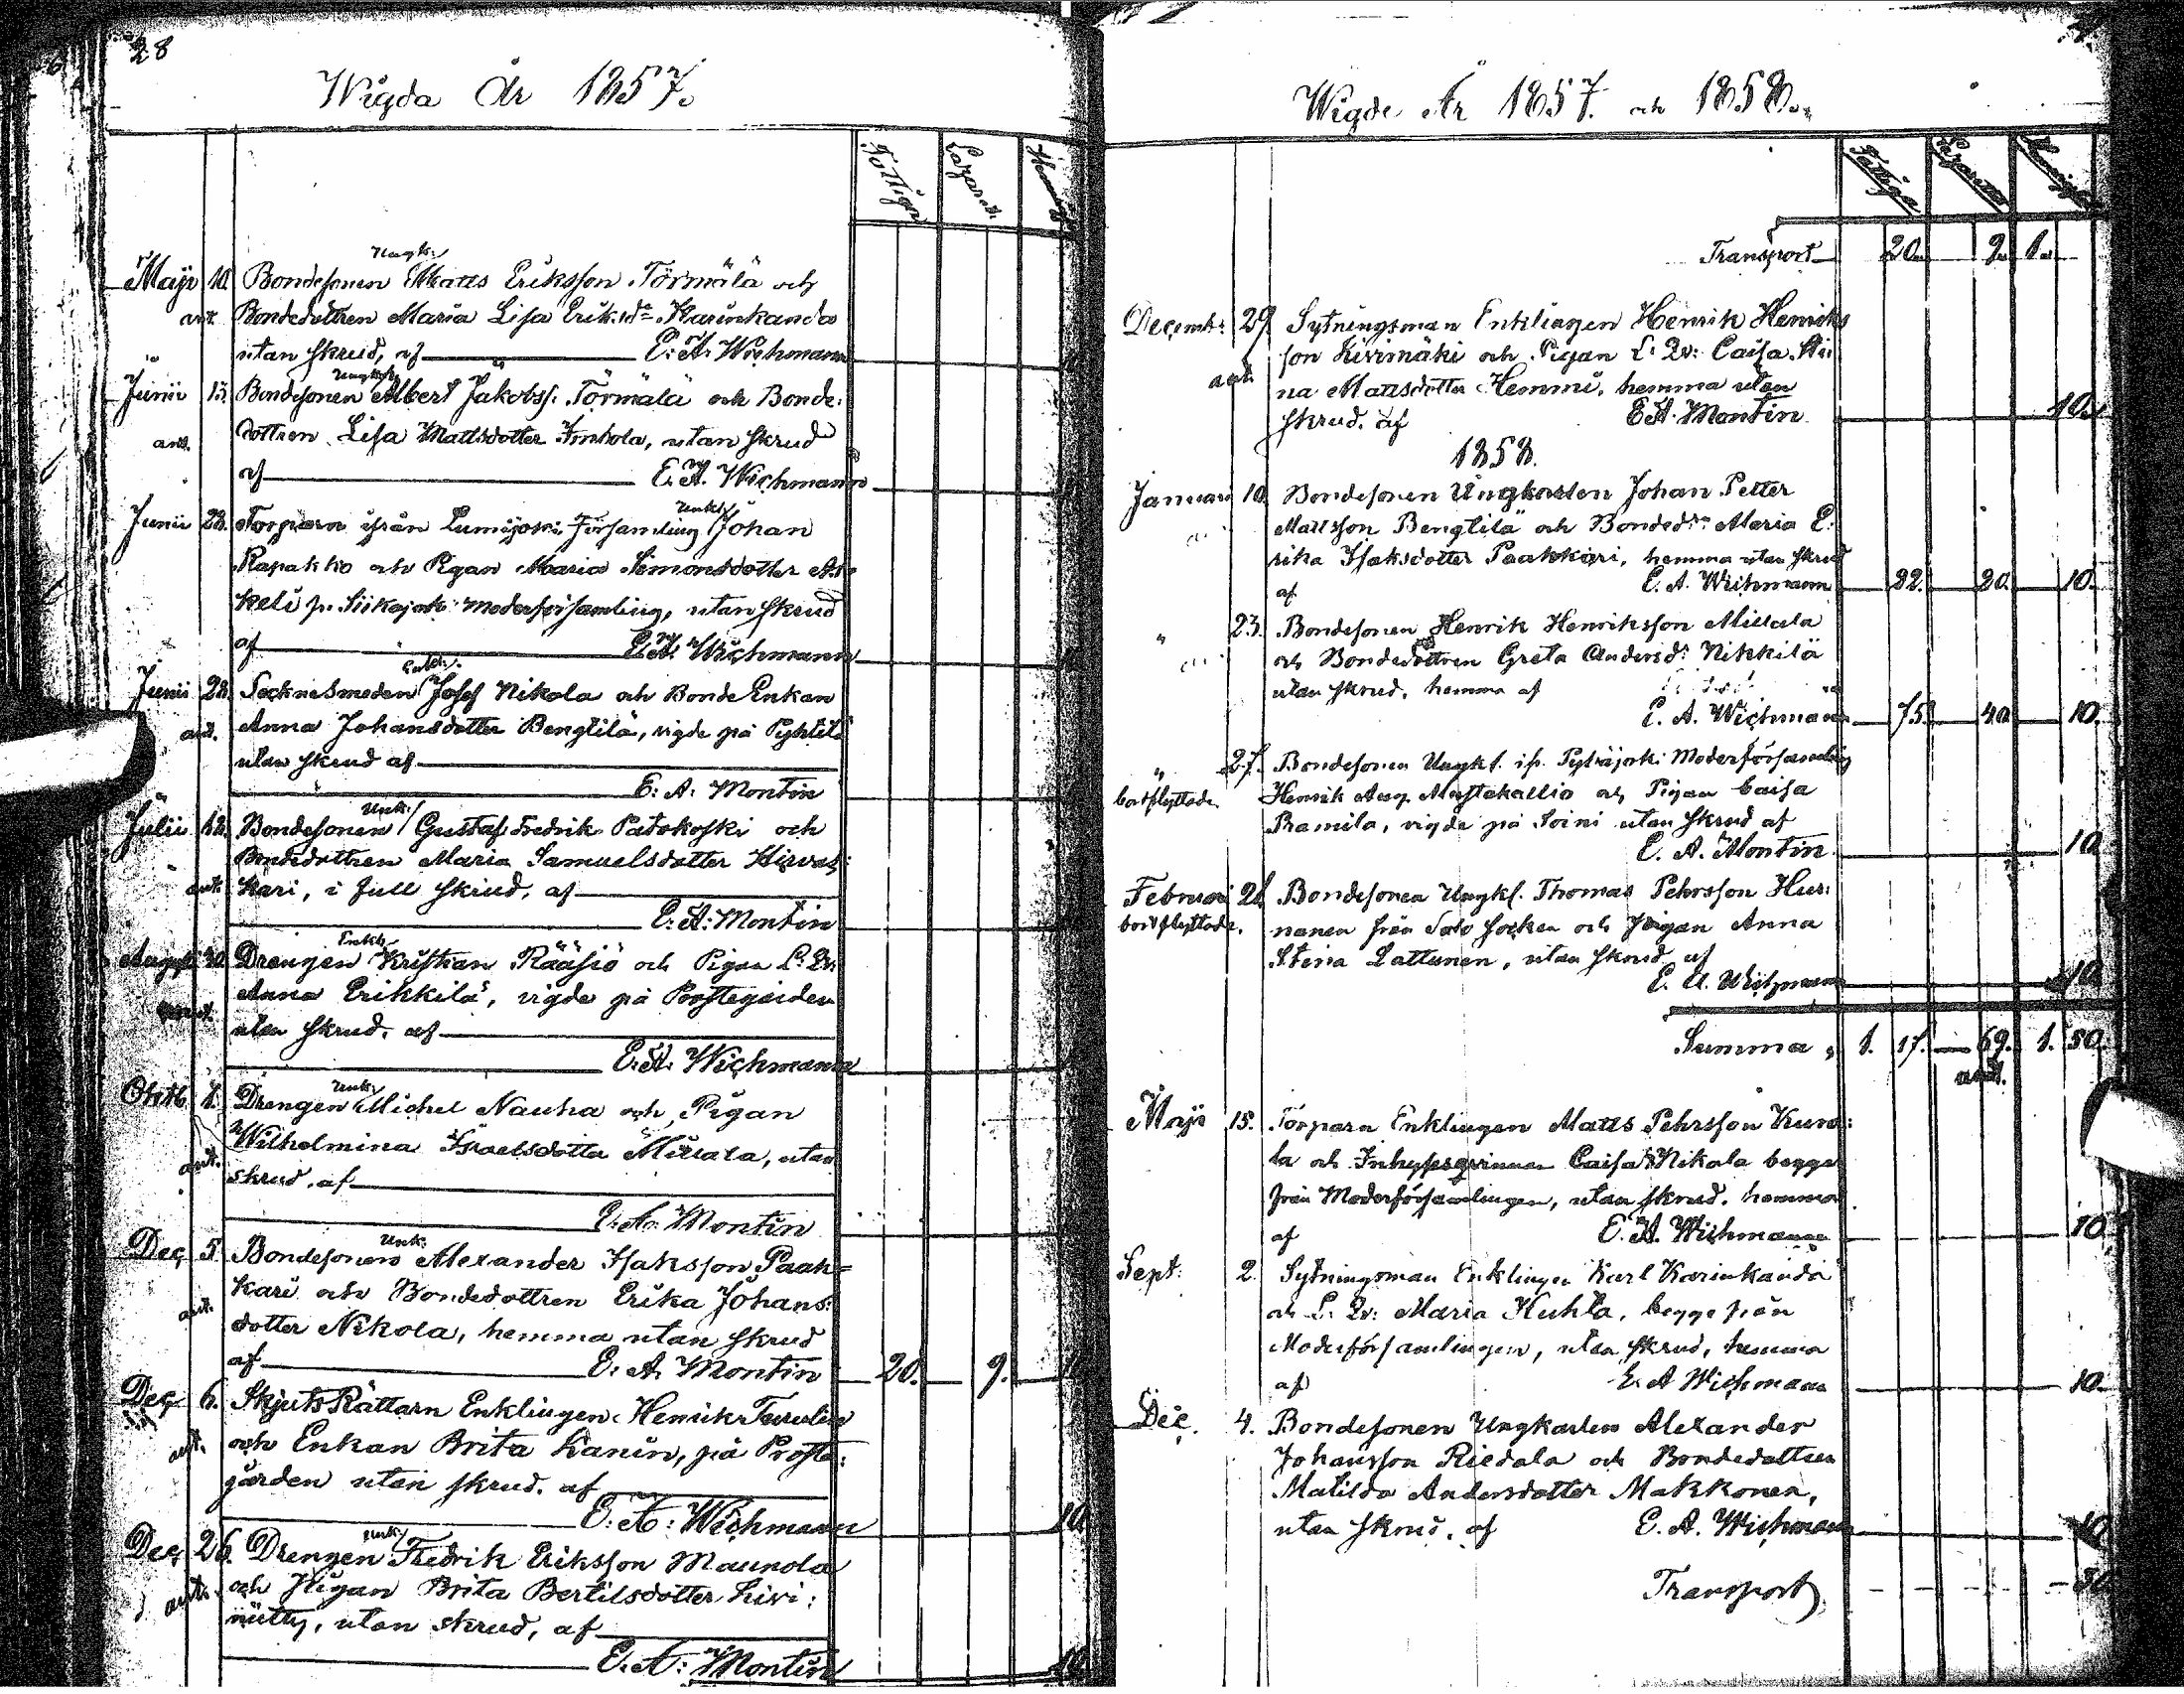 28
Wigda År 1857.
Fattiga Lazarett
Maji 10. Bondesonen Ungk. Matts Eriksson Törmälä och
ant. Bondedottren Maria Lisa Eriksdr Karinkanda
utan skrud, af E. A. Wichmann
Junii 13. Bondesonen Ungk. Albert Jakobss. Törmälä och Bonde:
ant. dottren Lisa Mattsdotter Inhola, utan skrud
af E. A. Wichmann
Junii 28. Torparn ifrån Lumijoki Församling Enkl. Johan
Rapakko och Pigan Maria Simonsdotter
keli fr. Siikajoki Moderförsamling, utan skrud
af E. A. Wichmann
Junii 28. Socknesmeden Enkl. Josef Nikola och Bonde Enkan
ant. Anna Johansdotter Bengtilä, vigde på Pyhtilä
utan skrud af
E. A. Montin
Julii 12. Bondesonen Unk. Gustaf Fredrik Patokoski och
Bondedottren Maria Samuelsdotter Hirvas:
ant. kari, i full skrud, af
E. A. Montin
Augusti 30. Drengen Enkl. Kristian Rääsiö och Pigan L. Qv.
Anna Erikkilä, vigde på Prostegården
utan skrud, af
E. A. Wichmann
Oktb. 1. Drengen Unk. Michel Nauha och Pigan
Wilhelmina Israelsdotter Miilala, utan
ant. skrud. af
E. A. Montin
Dec 5. Bondesonen Unk. Alexander Isaksson Paak=
kari och Bondedottren Erika Johans:
ant. dotter Nikola, hemma utan skrud
af E. A. Montin 20. 9. 10
Dec 6. Skjuts Rättarn Enklingen Henrik Turulin
ant. och Enkan Brita Kanin, på Proste:
gården utan skrud. af
E. A. Wichmann 10
Dec 26. Drengen Unk. Fredrik Eriksson Maunola
ant. och Pigan Brita Bertilsdotter Kivi:
niitty, utan skrud, af
E. A. Montin 10
Wigde År 1857. och 1858.
Fattiga Lazarettet
Transport 20. 9. 1.
Decemb: 29 Sytningsman Enklingen Henrik Henriks
son Kivimäki och Pigan L: Qv: Caisa Sti:
ant. na Mattsdotter Hemmi, hemma utan
skrud. af E. A. Montin 10.
1858.
Januari 10. Bondesonen Ungkarlen Johan Petter
Mattsson Bengtilä och Bondedr. Maria E:
rika Isaksdotter Paakkari, hemma utan skrud
af E. A. Wichmann 22. 20. 10.
" 23. Bondesonen Henrik Henriksson Miilala
och Bondedottren Greta Andersd: Nikkilä
utan skrud, hemma af
E. A. Wichmann 75. 40. 10.
" 27. Bondesonen Ungkl. ifr. Pyhäjoki Moderförsamling
bortflyttade. Henrik Aug. Mustakallio och Pigan Caisa
Pramila, vigde på Soini utan skrud af
E. A. Montin 10
Februari 28 Bondesonen Ungkl. Thomas Pehrsson Hur:
bortflyttade. nanen från Salo socken och Pigan Anna
Stina Lattunen, utan skrud af
E. A. Wichmann 10
Summa 1. 17. 69. 1. 50.
ant.
Maji 15. Torparn Enklingen Matts Pehrsson Kuro:
la och Inhyseqvinnan Caisa Nikola begge
från Moderförsamlingen, utan skrud. hemma
af E. A. Wichmann 10
Sept. 2. Sytningsman Enklingen Karl Karinkanda
och L: Qv: Maria Huhta, begge från
Moderförsamlingen, utan skrud, hemma
af E. A Wichmann 10.
Dec. 4. Bondesonen Ungkarlen Alexander
Johansson Riedala och Bondedottren
Matilda Andersdotter Makkonen,
utan skrud, af E. A. Wichmann 10
Transport 30